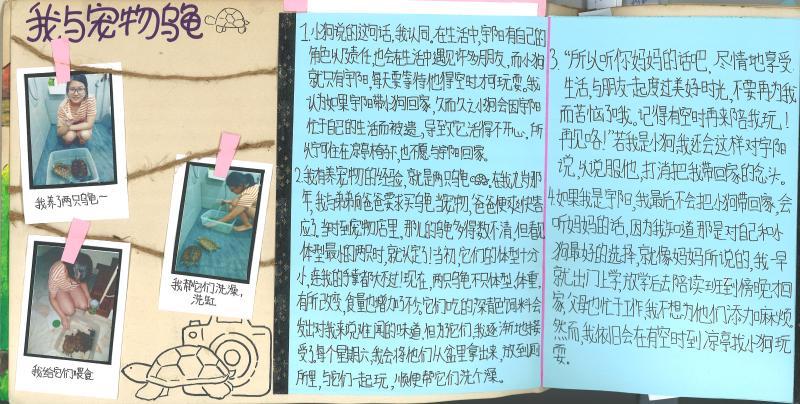 我与宠物乌龟
我养了两只乌龟~
我帮它们洗澡，
洗缸
我给它们喂食
1.小狗说的这句话，我认同，在生活中，宇阳有自己的
角色以及责任，也会在生活中遇见许多朋友，而小狗
就只有宇阳，每天要等待他得空时才可玩耍。我
认为如果宇阳带小狗回家，久而久之小狗会因宇阳
忙于自己的生活而被遗，导致它活得不开心。所
以宁可住在凉亭椅下，也不愿与宇阳回家。
2.我有养宠物的经验，就是两只乌龟，在我九岁那
年，我与弟弟向爸爸要求买乌龟当宠物，爸爸便爽快答
应，当时到宠物店里，那儿的乌龟多得数不清，但看见
体型最小的两只时，就认定了！当初，它们的体型十分
小，连我的手掌都大不过！现在，两只乌龟不只体型、体重，
有所改变，食量也增加了不少，它们吃的深褐色饲料会
发出对我来说难闻的味道，但为了它们，我逐渐地接
受。每个星期六，我会将他们从盆里拿出来，放到厕
所里，与它们一起玩，顺便帮它们洗个澡。
3. “所以听你妈妈的话吧，尽情地享受
生活，与朋友一起度过美好时光，不要再为我
而苦恼了哦。记得有空时再来陪我玩！
再见咯！”若我是小狗我还会这样对宇阳
说，以说服他，打消把我带回家的念头。
4.如果我是宇阳，我最后不会把小狗带回家，会
听妈妈的话，因为我知道那是对自己和小
狗最好的选择，就像妈妈所说的，我一早
就出门上学，放学后去陪读班到傍晚才回
家，父母也忙于工作，我不想为他们添加麻烦。
然而，我依旧会在有空时到凉亭找小狗玩
耍。